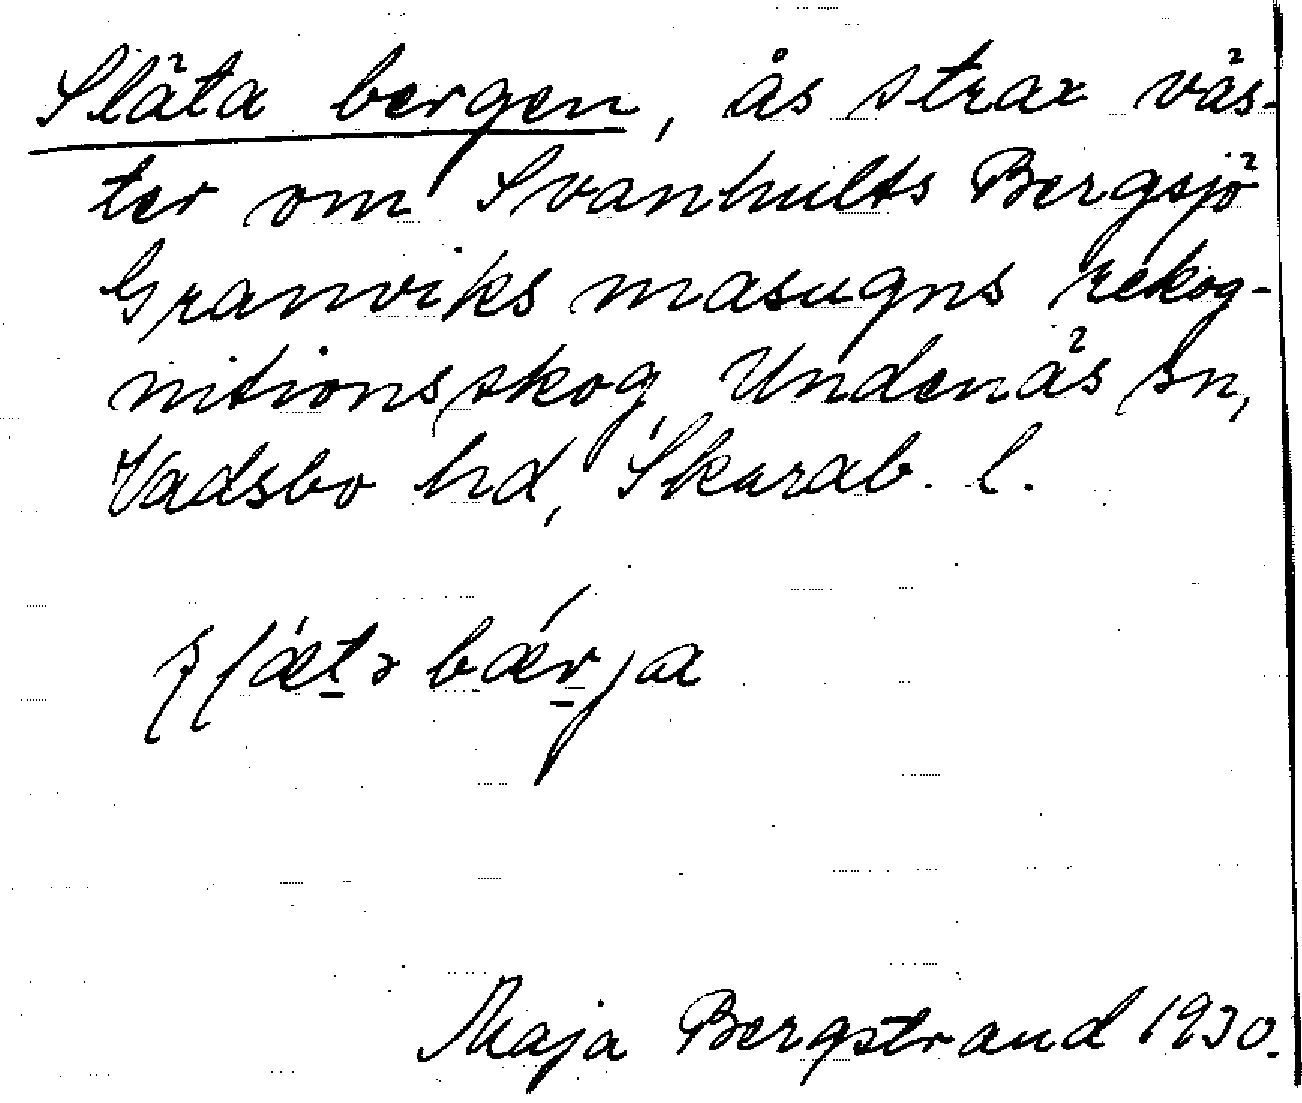 Släta bergen, ås strax väs-
ter om Svanhults Bergsjö
Granviks masugns rekog-
nitionsskog, Undenäs sn,
Vadsbo hd, Skarab. l.
bærja
Maja Bergstrand 1930.